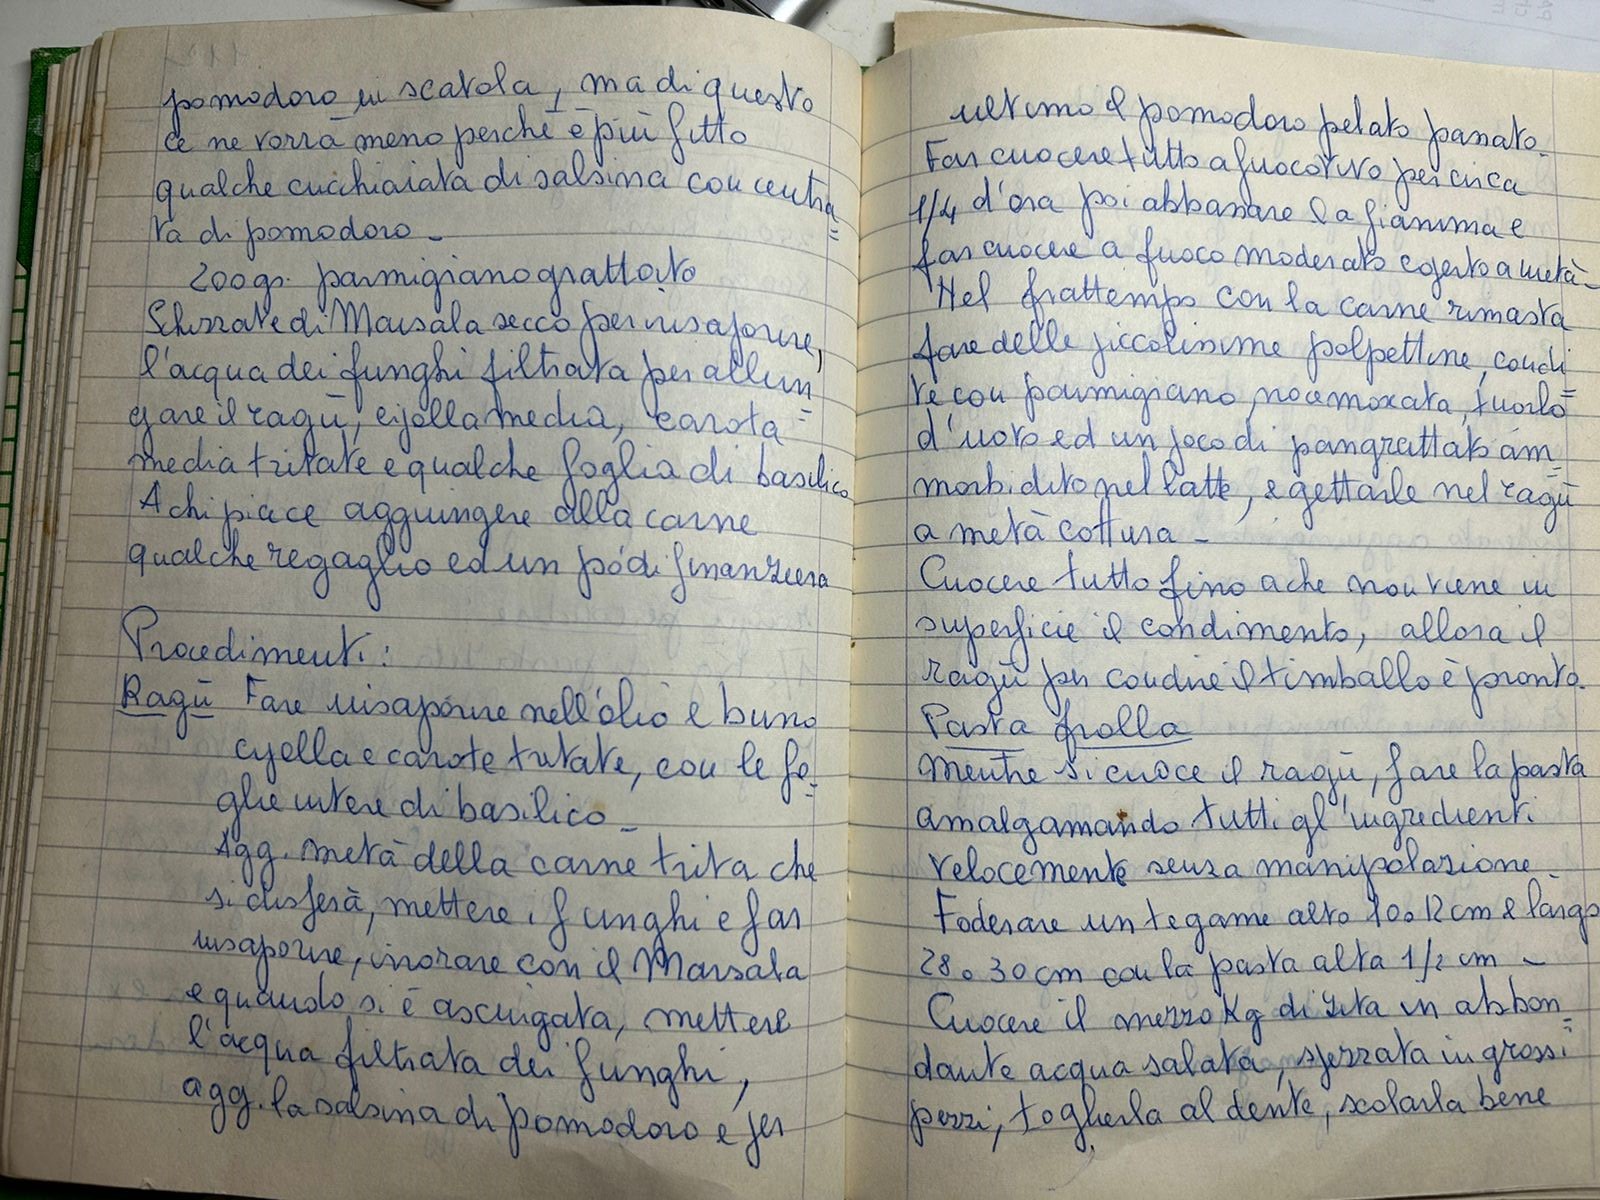 pomodoro in scatola, ma di questo
ce ne vorrà meno perchè è più fitto
qualche cucchiaiata di salsina concentra=
ta di pomodoro -
200 gr. parmigiano grattato
Schizzate di Marsala secco per insaporire,
l'acqua dei funghi filtrata per allun=
gare il ragù, cipolla media, carota
media tritate e qualche foglia di basilico
A chi piace aggiungere alla carne
qualche regaglio ed un pó di finanziera
Procedimenti:
Ragù Fare insaporire nell'olio e burro
cipolla e carote tritate, con le fo=
glie intere di basilico -
Agg. metà della carne trita che
si disferà, mettere i funghi e far
insaporire, irrorare con il Marsala
e quando si è asciugata, mettere
l'acqua filtrata dei funghi,
agg. la salsina di pomodoro e per
ultimo il pomodoro pelato passato.
Far cuocere tutto a fuoco vivo per circa
1/4 d'ora poi abbassare la fiamma e
far cuocere a fuoco moderato coperto a metà-
Nel frattempo con la carne rimasta
fare delle piccolissime polpettine, condi=
te con parmigiano, noce moxata, tuorlo
d'uovo ed un poco di pangrattato am=
morbidito nel latte, e gettarle nel ragù
a metà cottura -
Cuocere tutto fino a che non viene in
superficie il condimento, allora il
ragù per condire il timballo è pronto.
Pasta frolla
Mentre si cuoce il ragù, fare la pasta
amalgamando tutti gl'ingredienti
velocemente senza manipolazione -
Foderare un tegame alto 10 o 12 cm e largo
28 o 30 cm con la pasta alta 1/2 cm -
Cuocere il mezzo Kg di zita in abbon=
dante acqua salata, spezzata in grossi
pezzi, toglierla al dente, scolarla bene